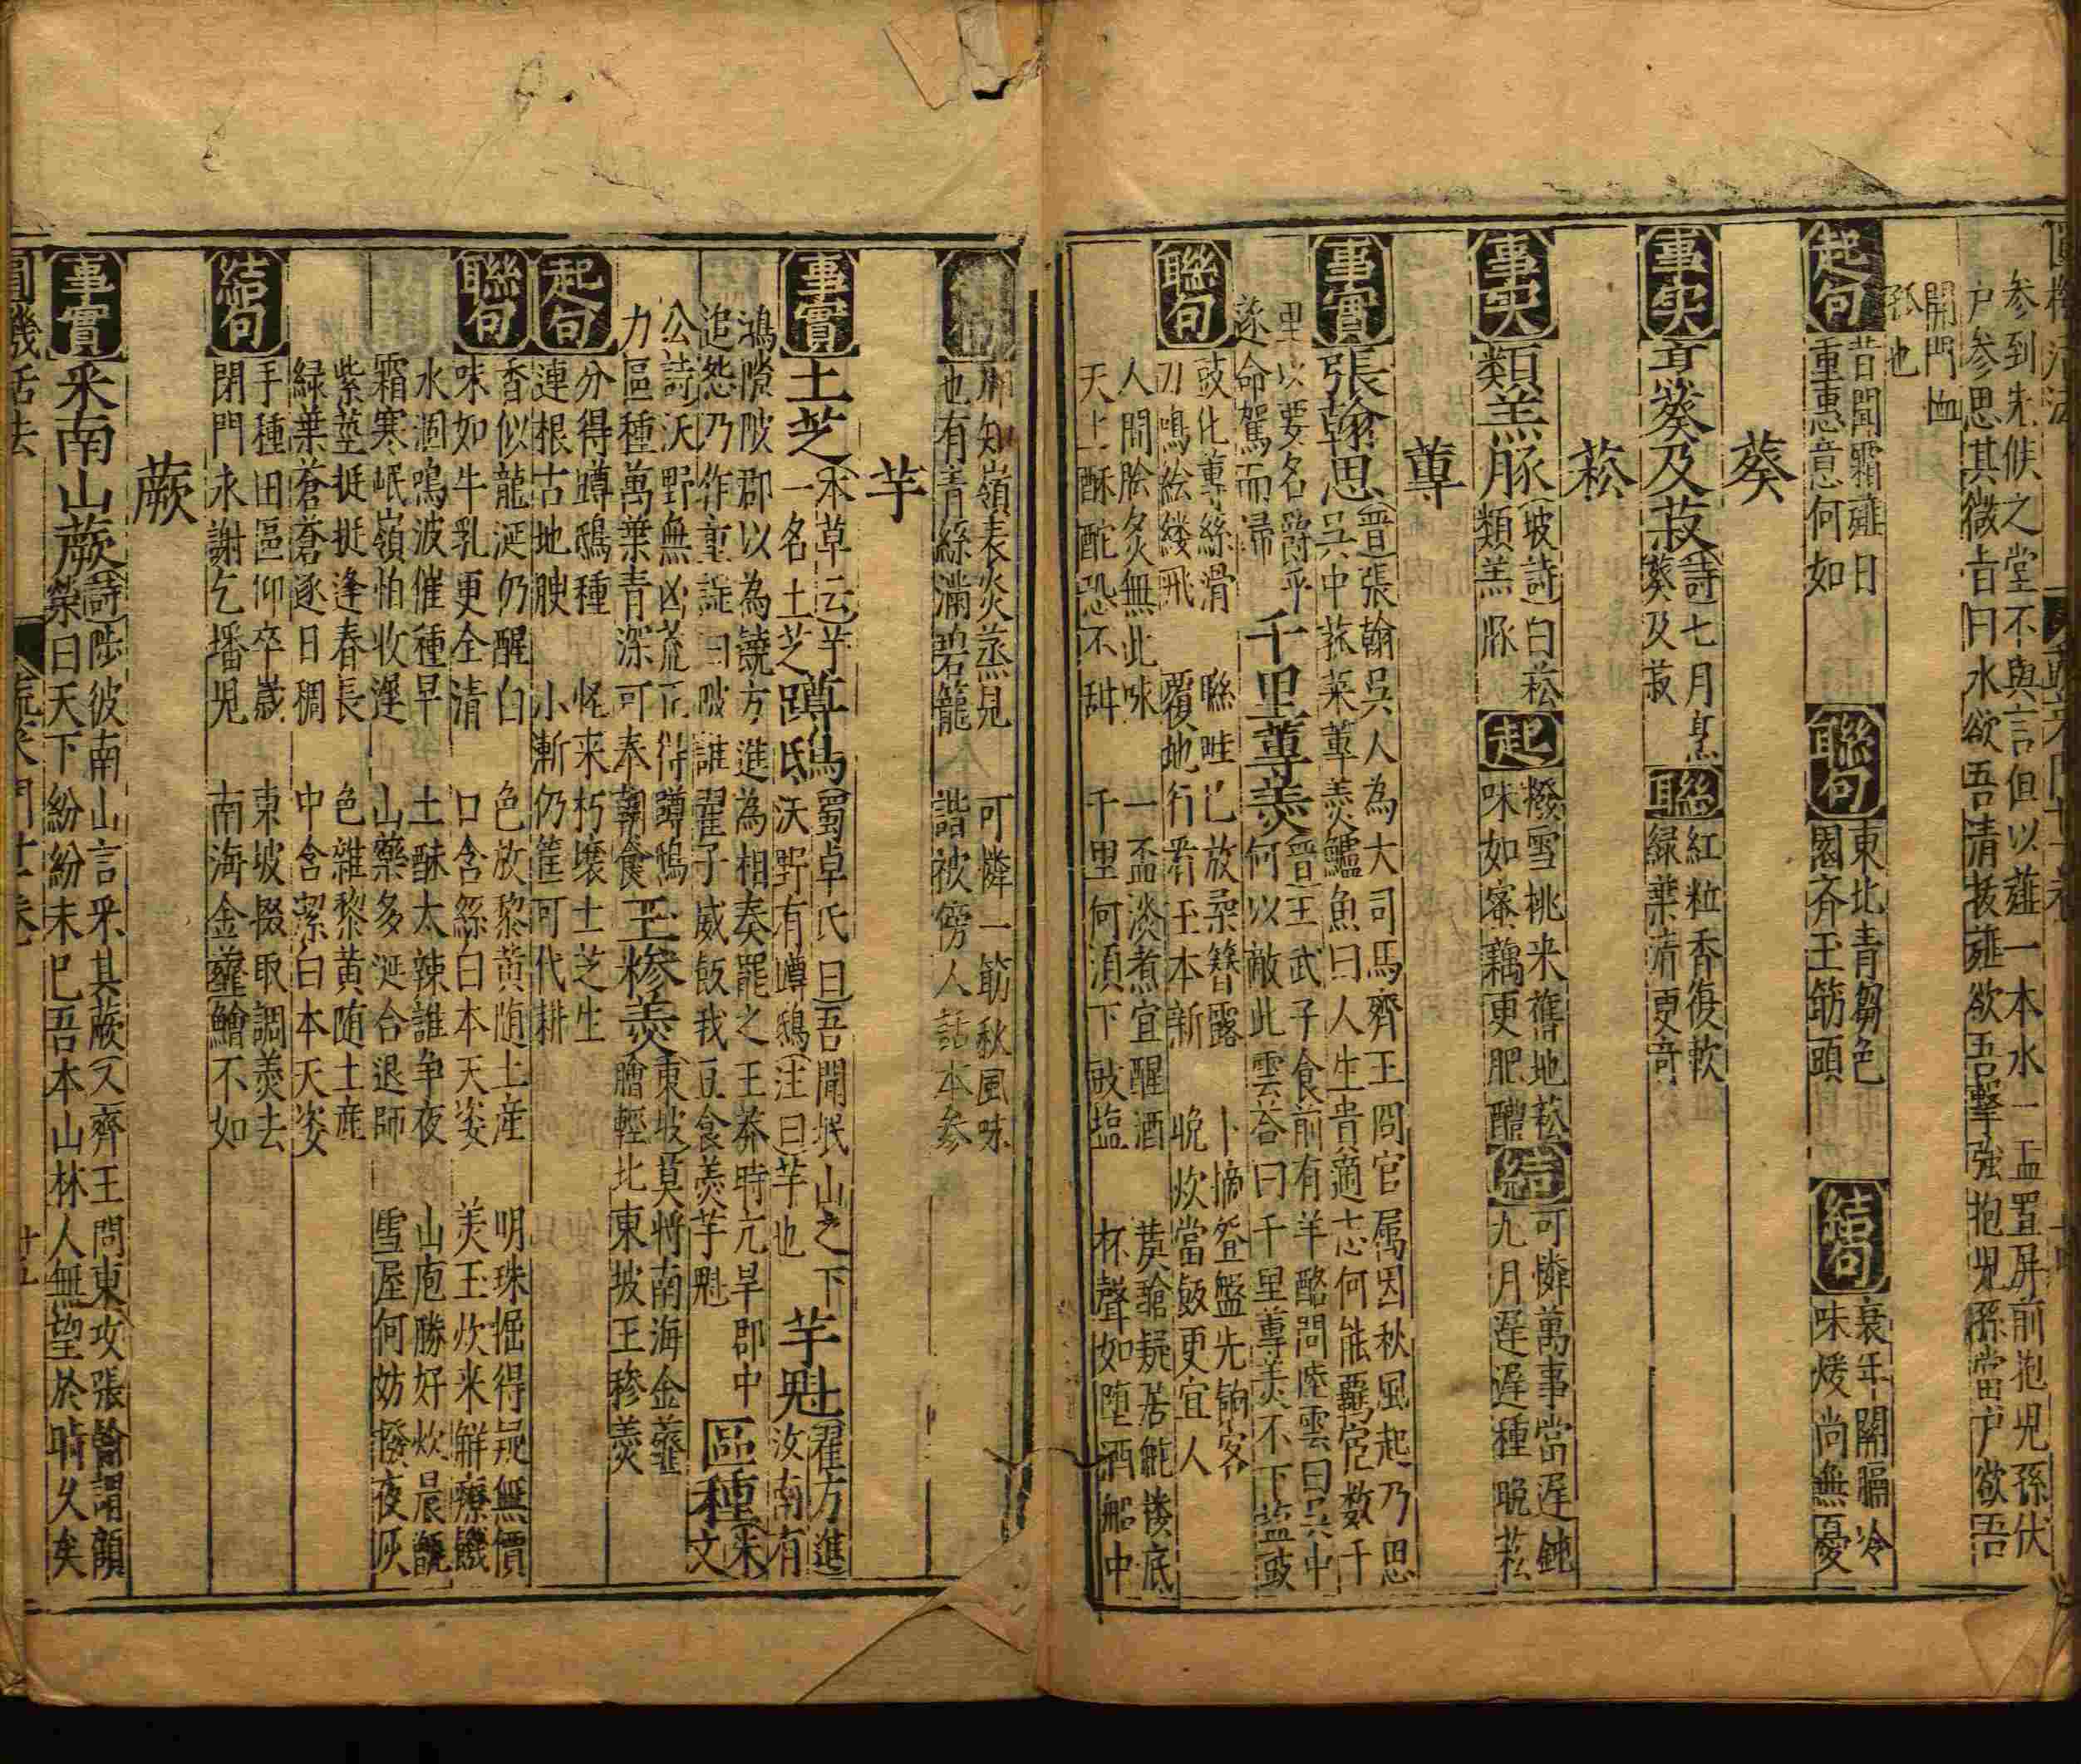 圓機活法
参到先候之堂不與言但以薤一本水一盂置屏前抱児孫伏
户参思其微㫖曰水欲吾清拔薤欲吾擊強抱児孫當户欲吾
開門恤
孤也
起句 昔聞霜薤曰
重惠意何如
聯句 東北青芻色
圓齊玉筯頭
結句 衰年關膈冷
味煖尚無憂
葵
事实 烹葵及菽 詩七月烹
葵及菽
聯 紅粒香復軟
緑葉清更竒
菘
事实 類羔豚 坡詩白菘
類羔豚
起 撥雪挑来舊地菘
味如蜜藕更肥醲
結 可憐萬事當遲鈍
九月遲遲種晩菘
蓴
事實 張翰思 晋張翰吳人為大司馬齊王冏官属因秋風起乃思
吳中菰菜蓴羮鱸魚曰人生貴適志何能覊宦数千
里以要名爵乎
遂命駕而歸
千里蓴羮 晋王武子食前有羊酪問陸雲曰吳中
何以敵此雲荅曰千里蓴羮不下塩豉
聯句 豉化蓴絲滑
刀鳴絵縷飛
聯畦已放尋簪露
覆地行看玉本新
卜摘登盤先餉客
晩炊當飯更宜人
人間膾炙無此味
天上酥酡恐不
一盃淡煮宜醒酒
千里何須下豉塩
疑居 楼底
杯聲如堕酒船中
知嶺表炎蒸見
也有青絲滿碧籠
可憐一筯秋風味
諳被傍人話本参
芋
事實 土芝 本草云芋
一名土芝
蹲鴟 蜀卓氏曰吾聞岷山之下
沃野有蹲鴟注曰芋也
芋魁 翟方進
汝南有
鴻隙陂郡以為饒方進為相奏罷之王莾時亢旱郡中
追怨乃作童謡曰陂誰翟子威飯我豆食羮芋魁
區種 朱文
公詩沃野無凶荒正得蹲鴟
力區種萬葉青深可奉朝食
玉糝羮 東坡莫将南海金虀
膾輕比東坡玉糝羮
起句 分得蹲鴟種
連根古地腴
怪来朽壤土芝生
小漸仍筐可代耕
聯句 香似龍涎仍醒白
味如牛乳更全清
色放黎黄随土産
口含絲白本天姿
明珠掘得疑無價
美玉炊来觧療饑
水涸鳴波催種早
霜寒岷嶺怕收遲
土酥太辣誰争夜
山藥多涎合退師
山庖勝好炊晨甑
雪屋何妨撥夜灰
紫莖挺挺逢春長
緑葉蒼蒼逐日稠
色雜黎黄随土産
中含潔白本天姿
結句 手種田區仰卒歲
閉門永謝乞墦児
東坡掇取調羮去
南海金虀鱠不如
蕨
事實 采南山蕨 詩陟彼南山言采其蕨又齊王問東攻張翰謂顔
榮曰天下紛紛未已吾本山林人無望於時乆矣
圓機活法
菜門十一卷
廿五